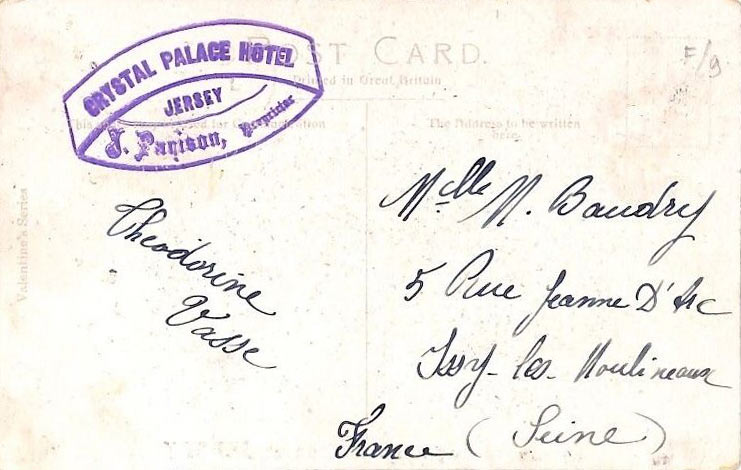 POST CARD.
Printed in Great Britain
CRYSTAL PALACE HOTEL
JERSEY
J. Parison, Proprietor
The Address to be written
here.
Valentine's Series
F/9
Theodorine
Vasse
Melle M. Baudry
5 Rue Jeanne D'Arc
Issy-les-Moulineaux
France (Seine)